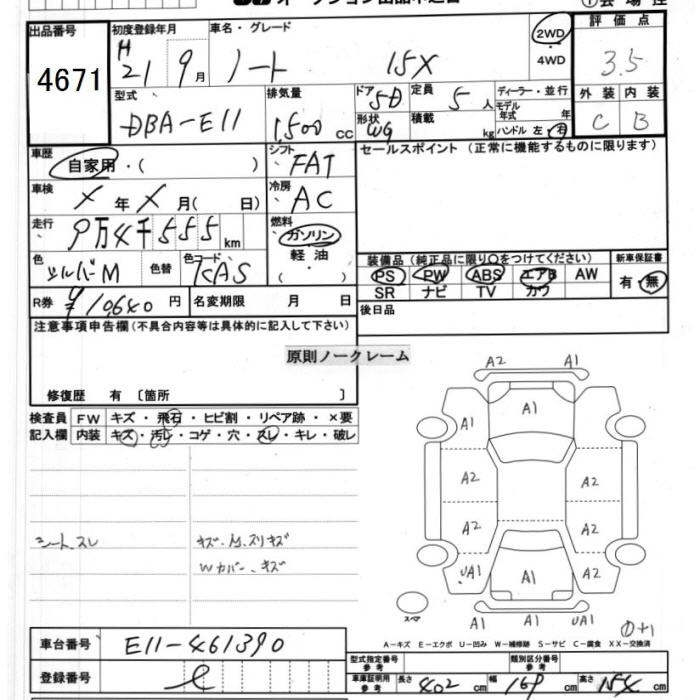 出品番号
4671
初度登録年月
H
21 9月
車名・グレード
ノート 15X
2WD
・
4WD
評価点
3.5
外装 内装
C B
型式
DBA-E11
排気量
1500 cc
ドア 5D
形状 WG
定員 5人
積載 kg
ディーラー・並行
モデル年式 年
ハンドル 左・右
車歴
自家用・( )
シフト
FAT
車検
X年X月( 日)
冷房
AC
走行
9万4千555km
燃料
ガソリン
軽油
( ・ )
色
シルバーM
色替
色コード
KAS
R券 ¥10,640円
名変期限 月 日
セールスポイント(正常に機能するものに限ります)
装備品(純正品に限り○をつけてください)
PS PW ABS エアB AW
SR ナビ TV カワ
新車保証書
有・無
後日品
注意事項申告欄(不具合内容等は具体的に記入して下さい)
原則ノークレーム
修復歴 有〔箇所 〕
検査員記入欄
FW キズ・飛石・ヒビ割・リペア跡・×要
内装 キズ・汚レ・コゲ・穴・スレ・キレ・破レ
シート、スレ
キズ・Mスリキズ
Wカバー、キズ
A2 A1
A1 A1 A1
A2 A2
A2 A2
UA1 A1 A2
スペア
A1 A1 UA1
①+1
A-キズ E-エクボ U-凹み W-補修跡 S-サビ C-腐食 XX-交換済
車台番号 E11-461390
登録番号
型式指定番号参考
類別区分番号参考
車庫証明用参考
長さ 402cm 幅 169cm 高さ 154cm